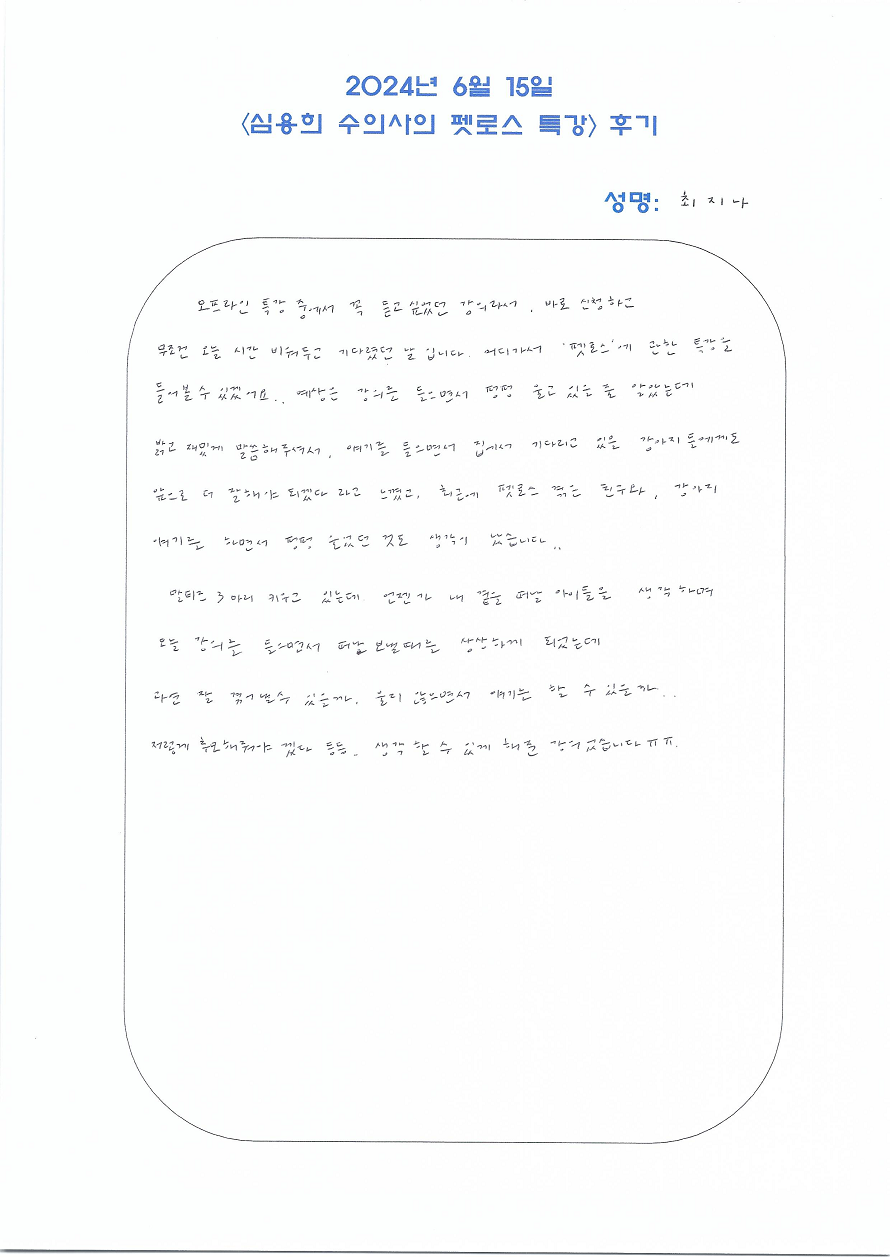 2024년 6월 15일
<심용희 수의사의 펫로스 특강> 후기
성명: 최지나
오프라인 특강 중에서 꼭 듣고 싶었던 강의라서, 바로 신청하고
무조건 오늘 시간 비워두고 기다렸던 날 입니다. 어디가서 '펫로스'에 관한 특강을
들어볼 수 있겠어요.. 예상은 강의를 들으면서 펑펑 울고 있을 줄 알았는데
밝고 재밌게 말씀해주셔서, 얘기를 들으면서 집에서 기다리고 있을 강아지들에게도
앞으로 더 잘해야 되겠다 라고 느꼈고, 최근에 펫로스 겪은 친구와, 강아지
얘기를 하면서 펑펑 울었던 것도 생각이 났습니다..
말티즈 3마리 키우고 있는데 언젠가 내 곁을 떠날 아이들을 생각하며
오늘 강의를 들으면서 떠나 보낼때를 상상하게 되었는데
과연 잘 겪어낼수 있을까. 울지 않으면서 얘기는 할 수 있을까..
저렇게 해줘야 겠다 등등. 생각 할 수 있게 해준 강의였습니다ㅠㅠ.